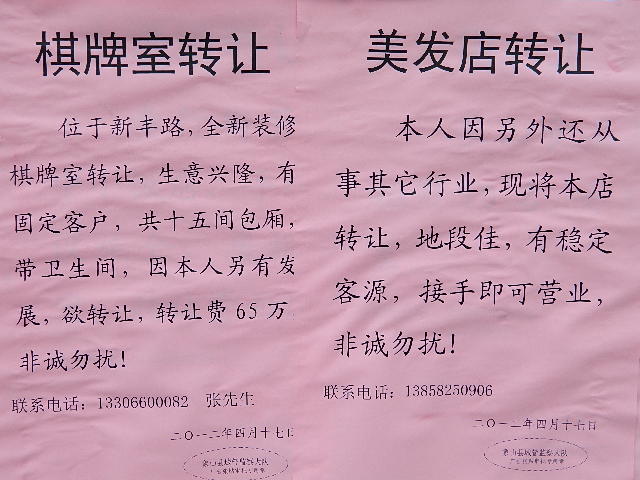 棋牌室转让
位于新丰路，全新装修
棋牌室转让，生意兴隆，有
固定客户，共十五间包厢，
带卫生间，因本人另有发
展，欲转让，转让费65万
非诚勿扰！
联系电话：13306600082 张先生
二〇一二年四月十七日
象山县城管监察大队
美发店转让
本人因另外还从
事其它行业，现将本店
转让，地段佳，有稳定
客源，接手即可营业，
非诚勿扰！
联系电话：13858250906
二〇一二年四月十七日
象山县城管监察大队